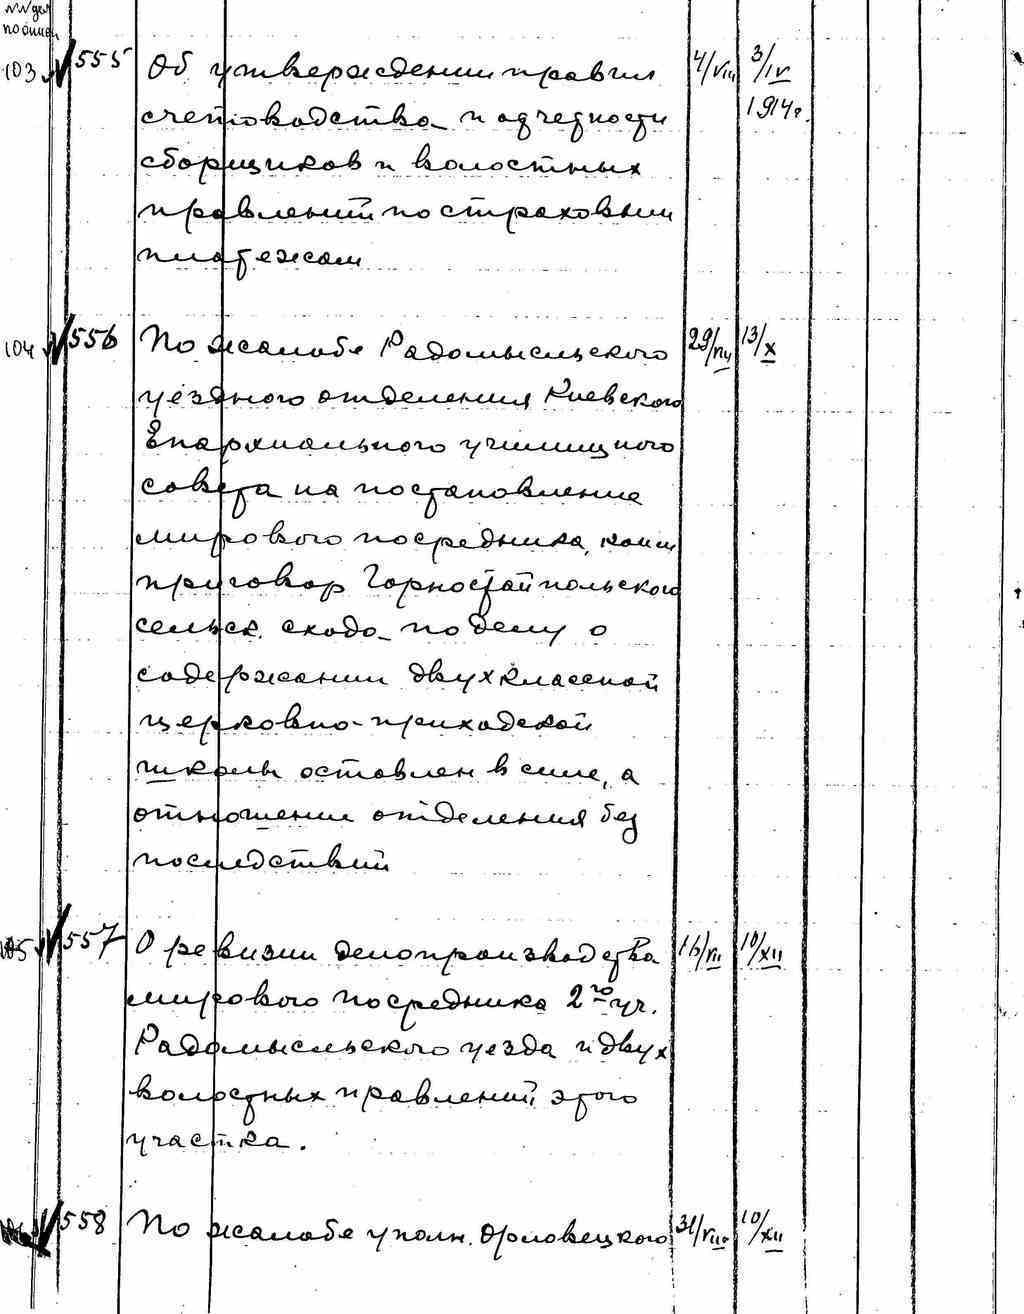 №№ дел
по описи
103 555 Об утверждении правил 4/VIII 3/IV
счетоводства и отчетности 1914г.
сборщиков и волостных
правлений по страховым
платежам
104 556 По жалобе Радомысльского 29/IV 13/X
уездного отделения Киевского
Епархиального училищного
совета на постановление
мирового посредника, коим
приговор Горностайпольского
сельск. схода по делу о
содержании двухклассной
церковно-приходской
школы оставлен в силе, а
отношение отделения без
последствий
105 557 О ревизии делопроизводства 16/VII 10/XII
мирового посредника 2го уч.
Радомысльского уезда и двух
волостных правлений этого
участка.
558 По жалобе уполн. Орловецкого 31/VIII 10/XII